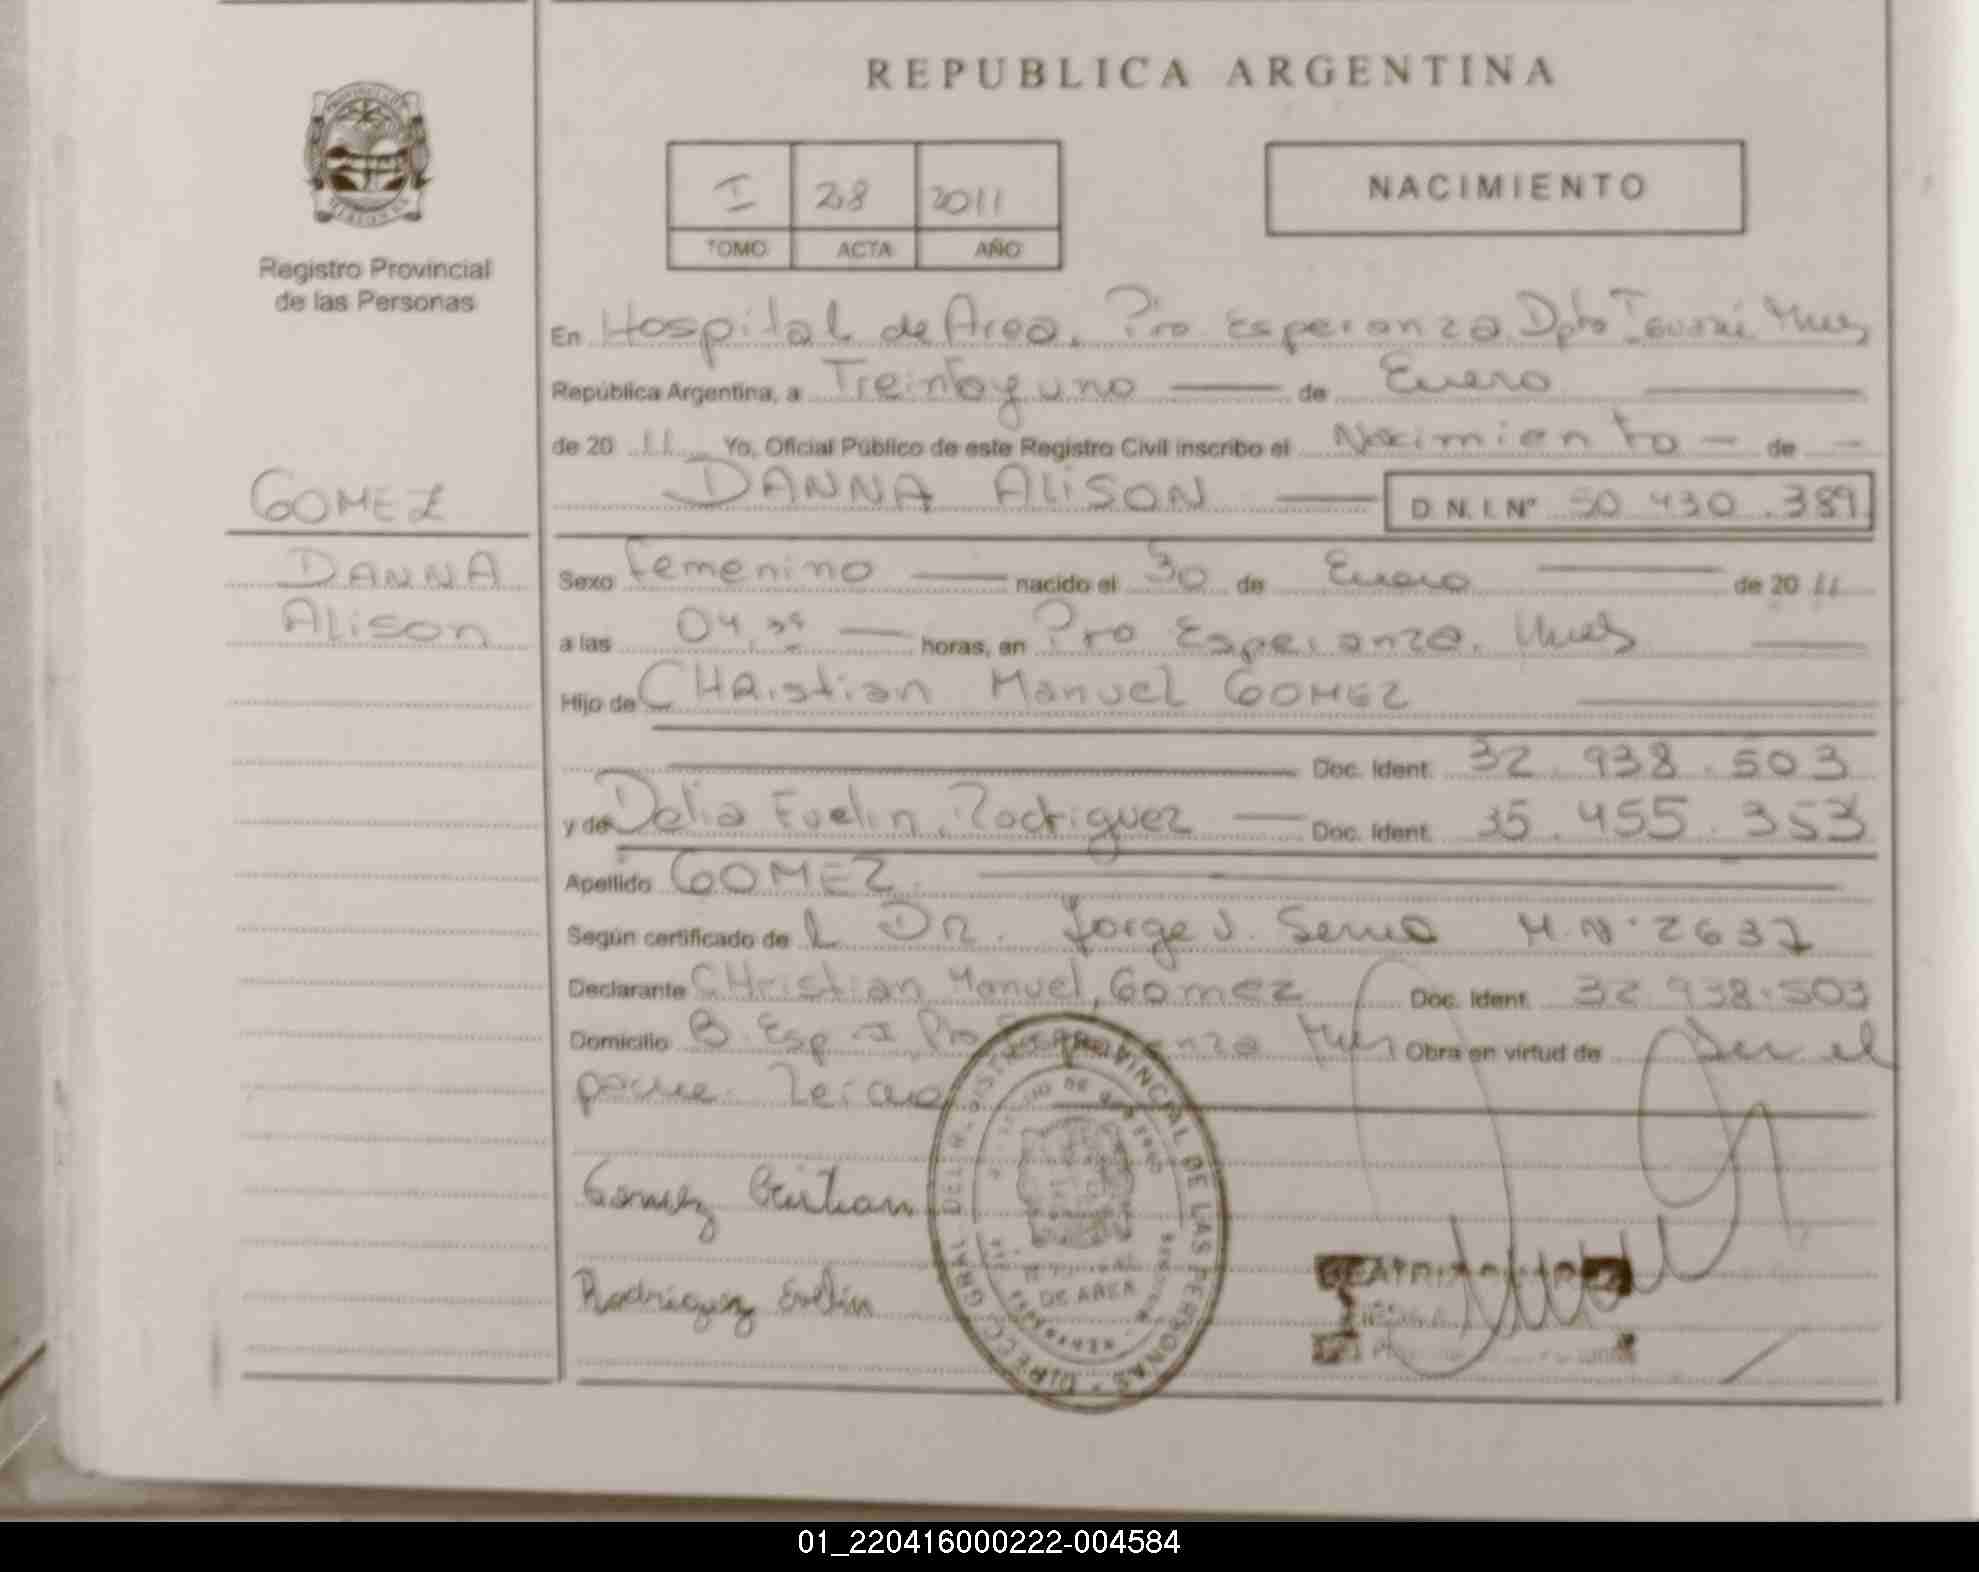 REPUBLICA ARGENTINA
I 28 2011
TOMO ACTA AÑO
NACIMIENTO
Registro Provincial
de las Personas
En Hospital de Area, Pto Esperanza Dpto Iguazú Mnes
República Argentina, a Treinta y uno de Enero
de 20 11 Yo, Oficial Público de este Registro Civil inscribo el Nacimiento de
DANNA ALISON D.N.I. Nº 50.430.389
GOMEZ
DANNA
Alison
Sexo femenino nacido el 30 de Enero de 20 11
a las 04, horas, en Pto Esperanza, Mnes
Hijo de CHRistian Manuel GOMEZ
Doc. Ident. 32.938.503
y de Delia Evelin, Rodriguez Doc. Ident. 35.455.353
Apellido GOMEZ
Según certificado de l DR. Jorge J. M.N. 2637
Declarante CHristian Manuel, Gomez Doc. Ident. 32.938.503
Domicilio B. Esp Obra en virtud de Ser el
padre.
Gomez Cristian
Rodriguez Evelin
PROVINCIAL DE LAS PERSONAS
DE AREA
01_220416000222-004584